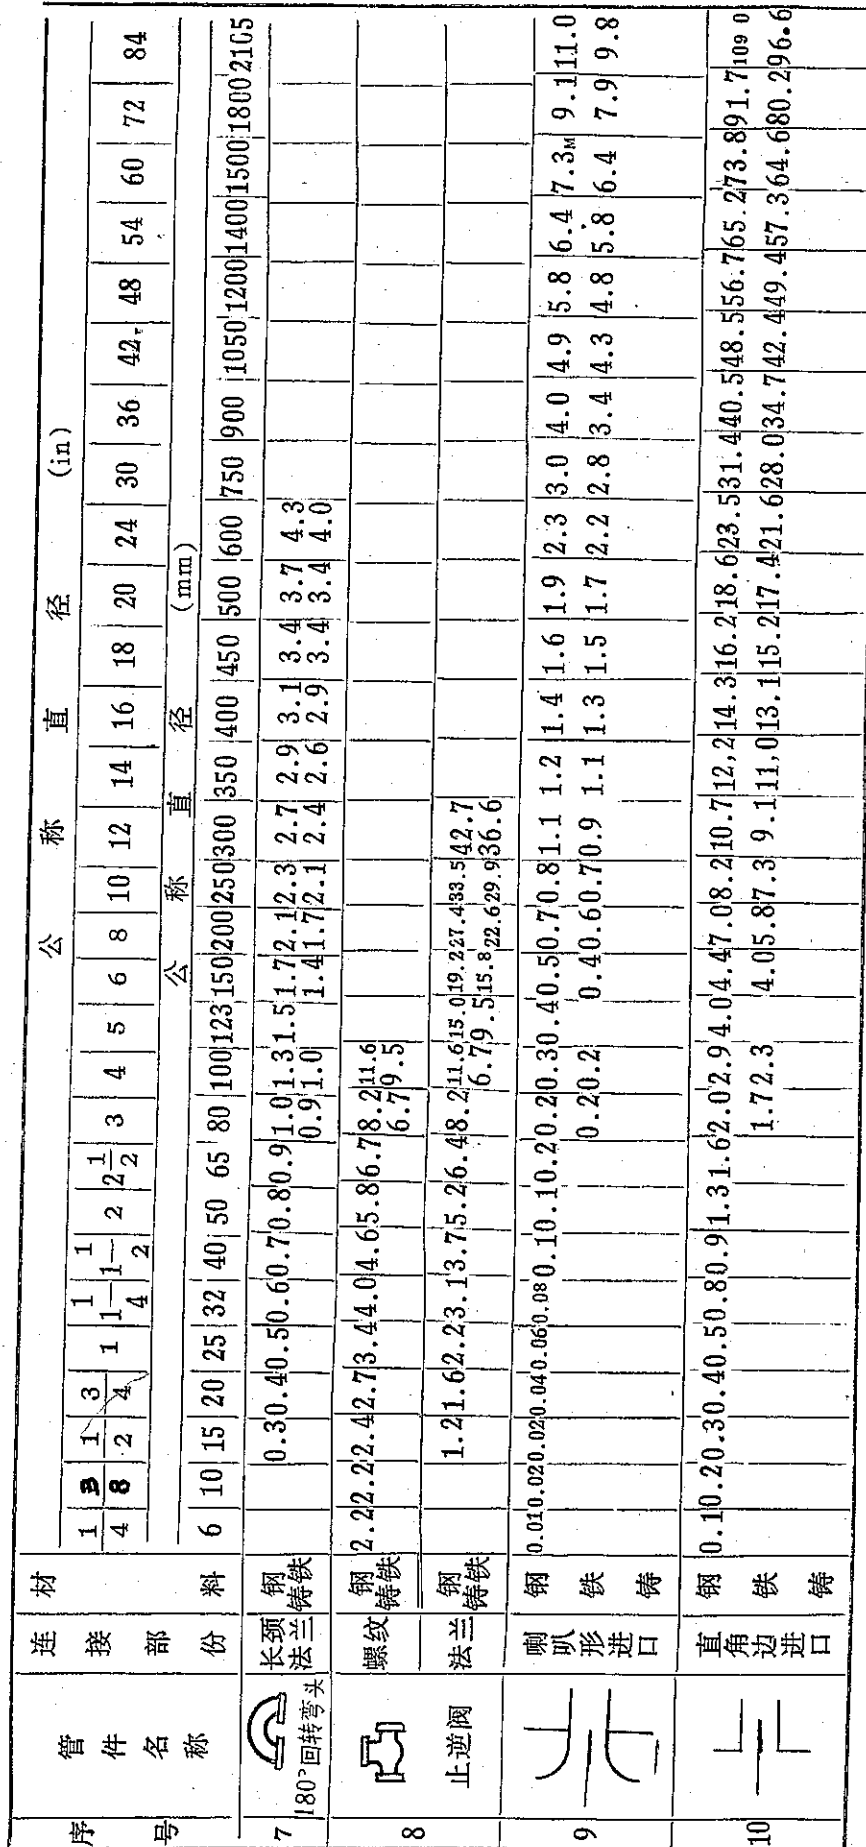 序号 管件名称 连接部份 材料 公称直径 (in)
1/4 3/8 1/2 3/4 1 1 1/4 1 1/2 2 2 1/2 3 4 5 6 8 10 12 14 16 18 20 24 30 36 42 48 54 60 72 84
公称直径 (mm)
6 10 15 20 25 32 40 50 65 80 100 123 150 200 250 300 350 400 450 500 600 750 900 1050 1200 1400 1500 1800 2105
7 180°回转弯头 长颈法兰 钢 0.3 0.4 0.5 0.6 0.7 0.8 0.9 1.0 1.3 1.5 1.7 2.1 2.3 2.7 2.9 3.1 3.4 3.7 4.3
铸铁 0.9 1.0 1.4 1.7 2.1 2.4 2.6 2.9 3.4 3.4 4.0
8 止逆阀 螺纹 钢 2.2 2.2 2.4 2.7 3.4 4.0 4.6 5.8 6.7 8.2 11.6
铸铁 6.7 9.5
法兰 钢 1.2 1.6 2.2 3.1 3.7 5.2 6.4 8.2 11.6 15.0 19.2 27.4 33.5 42.7
铸铁 6.7 9.5 15.8 22.6 29.9 36.6
9 喇叭形进口 钢 0.01 0.02 0.02 0.04 0.06 0.08 0.1 0.1 0.2 0.2 0.3 0.4 0.5 0.7 0.8 1.1 1.2 1.4 1.6 1.9 2.3 3.0 4.0 4.9 5.8 6.4 7.3M 9.1 11.0
铁 0.2 0.2 0.4 0.6 0.7 0.9 1.1 1.3 1.5 1.7 2.2 2.8 3.4 4.3 4.8 5.8 6.4 7.9 9.8
铸
10 直角边进口 钢 0.1 0.2 0.3 0.4 0.5 0.8 0.9 1.3 1.6 2.0 2.9 4.0 4.4 7.0 8.2 10.7 12,2 14.3 16.2 18.6 23.5 31.4 40.5 48.5 56.7 65.2 73.8 91.7 109 0
铁 1.7 2.3 4.0 5.8 7.3 9.1 11,0 13.1 15.2 17.4 21.6 28.0 34.7 42.4 49.4 57.3 64.6 80.2 96.6
铸